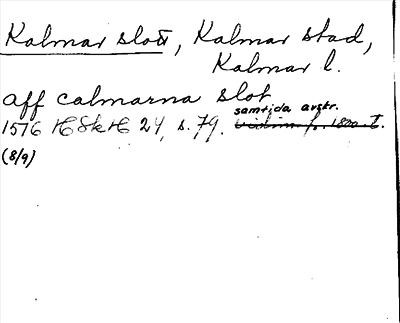 Kalmar slott, Kalmar stad,
Kalmar l.
aff calmarna slot
samtida avskr.
1576 HSkH 24, s. 79. vidim. fr. 1800-t.
(8/9)